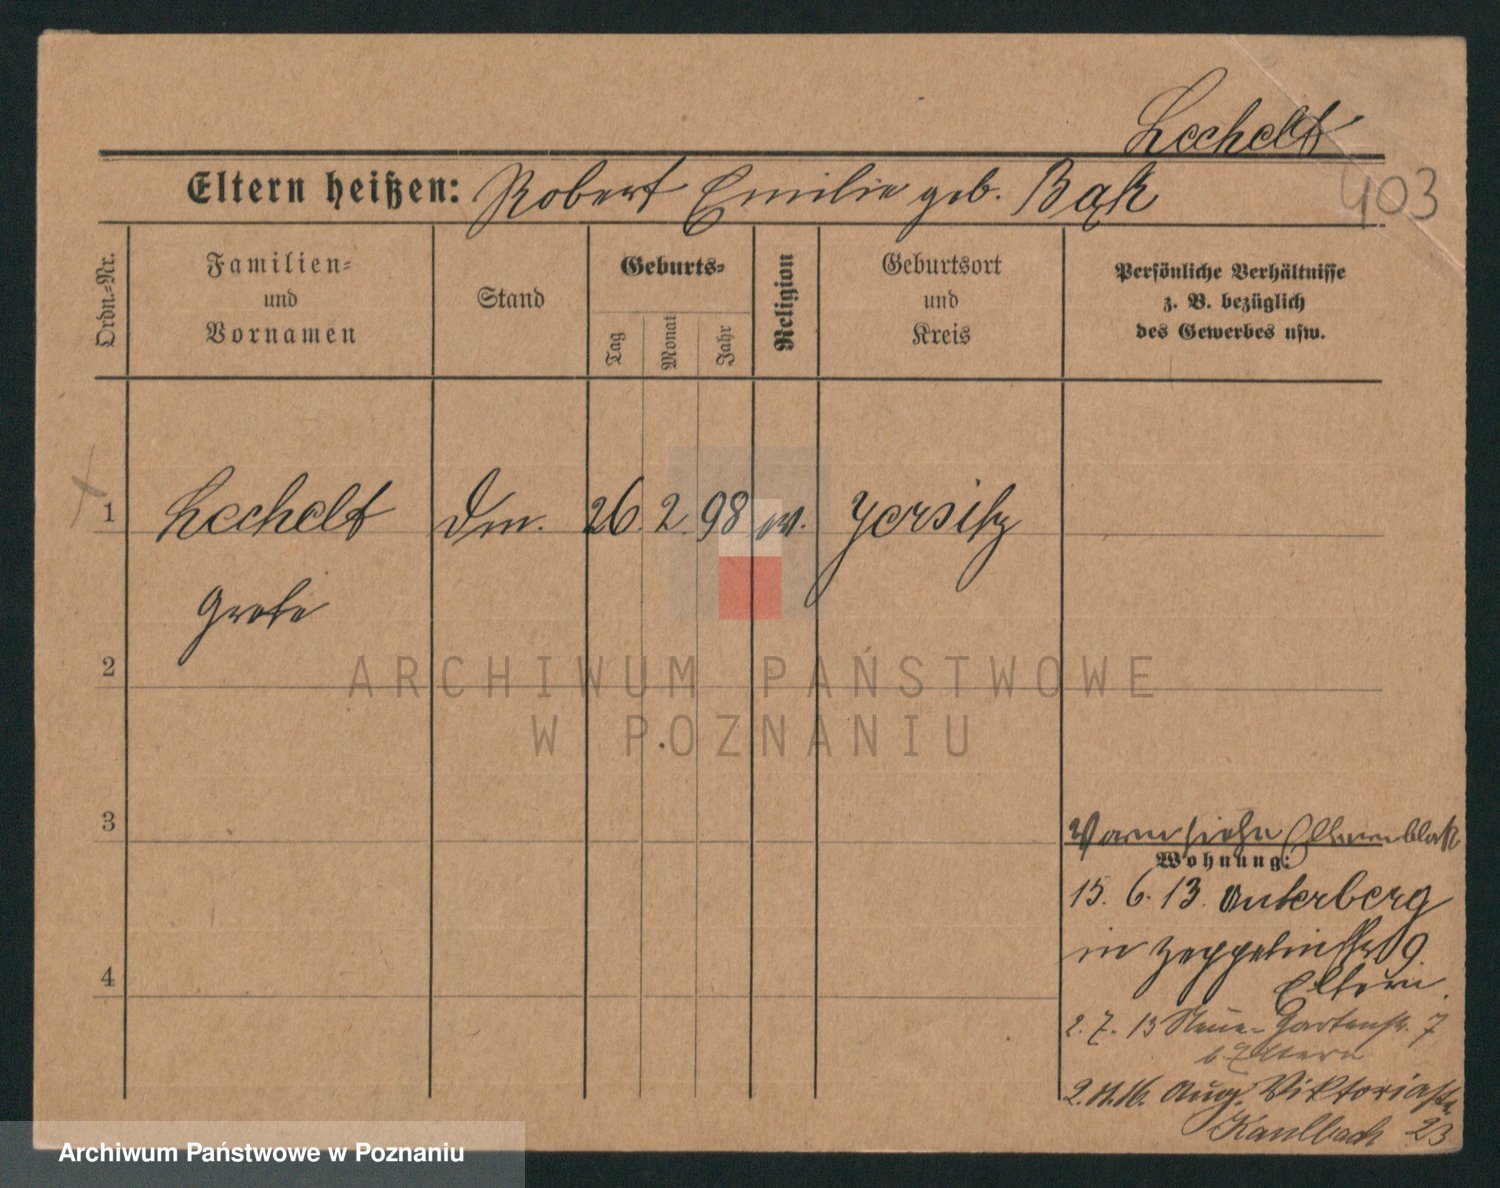 Lechelt
Eltern heißen: Robert Emilie geb. Bąk
403
Ordn.=Nr.
Familien=
und
Vornamen
Stand
Geburts=
Tag
Monat
Jahr
Religion
Geburtsort
und
Kreis
Persönliche Verhältnisse
z. B. bezüglich
des Gewerbes usw.
1 Lechelt 26. 2. 98 Jersitz
Grete
2
ARCHIWUM PAŃSTWOWE
W POZNANIU
3
Vorm siehe Elternblatt
Wohnung:
15. 6. 13. Unterberg
in Zeppelinstr 9
Eltern.
2. 7. 13 Neue Gartenstr. 7
b Eltern
2.11.16. Aug. Viktoriastr.
Kaulbach 23
4
Archiwum Państwowe w Poznaniu